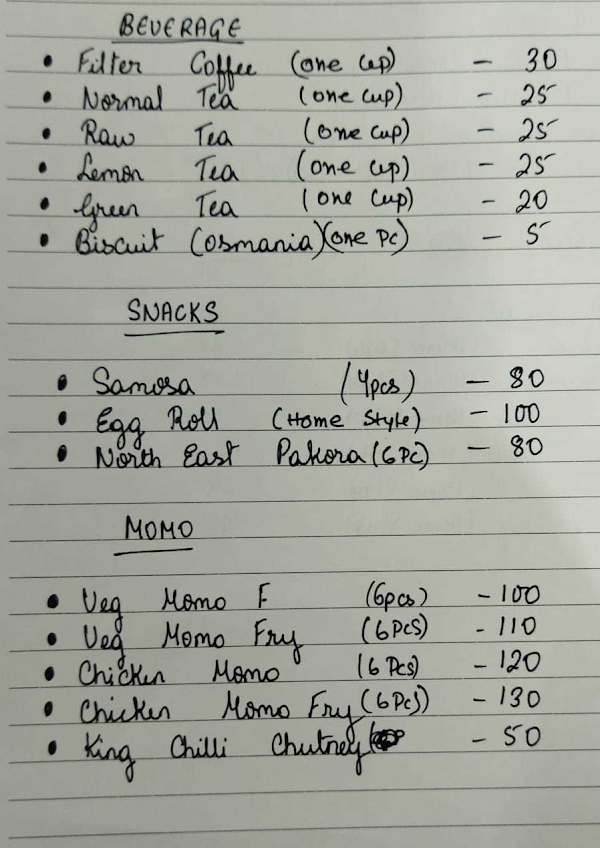 BEVERAGE
• Filter Coffee (one Cup) - 30
• Normal Tea (one cup) - 25
• Raw Tea (one Cup) - 25
• Lemon Tea (one cup) - 25
• Green Tea (one Cup) - 20
• Biscuit (Osmania) (one Pc) - 5
SNACKS
• Samosa (4pcs) - 80
• Egg Roll (Home Style) - 100
• North East Pakora (6 Pc) - 80
MOMO
• Veg Momo F (6pcs) - 100
• Veg Momo Fry (6 Pcs) - 110
• Chicken Momo (6 Pcs) - 120
• Chicken Momo Fry (6 Pcs) - 130
• King Chilli Chutney - 50